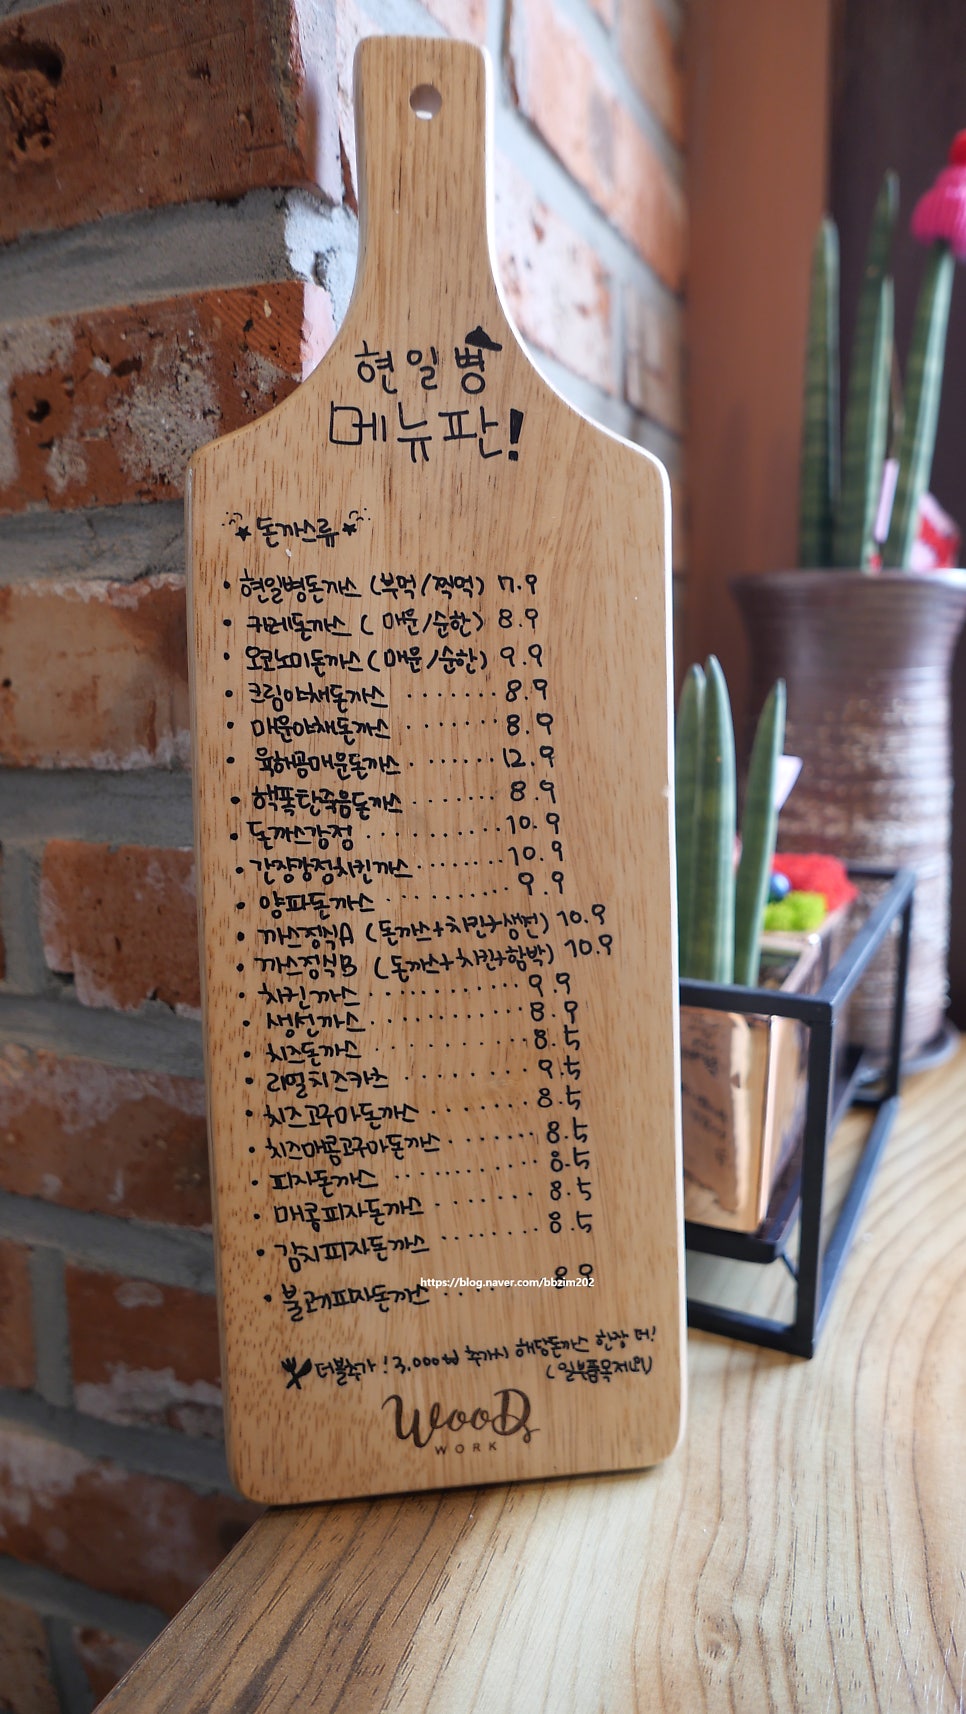 현일병
메뉴판!
돈까스류
· 현일병돈까스 (부먹/찍먹) 7.9
· 카레돈까스 ( 매운/순한) 8.9
· 오코노미돈까스 ( 매운/순한) 9.9
· 크림야채돈까스 ······· 8.9
· 매운야채돈까스 ······· 8.9
· 육해공매운돈까스 ······· 12.9
· 핵폭탄죽음돈까스 ······· 8.9
· 돈까스강정 ·········· 10.9
· 간장강정치킨까스 ········ 10.9
· 양파돈까스 ·········· 9.9
· 까스정식A (돈까스+치킨+생선) 10.9
· 까스정식B (돈까스+치킨+함박) 10.9
· 치킨까스 ············ 9.9
· 생선까스 ············ 8.9
· 치즈돈까스 ·········· 8.5
· 리얼치즈카츠 ········· 9.5
· 치즈고구마돈까스 ······· 8.5
· 치즈매콤고구마돈까스 ······· 8.5
· 피자돈까스 ·········· 8.5
· 매콤피자돈까스 ······· 8.5
· 김치피자돈까스 ······· 8.5
· 불고기피자돈까스 ·····
https://blog.naver.com/bbzim202
더블추가! 3.000₩ 추가시 해당돈까스 한장 더!
(일부품목제외)
WooDs
WORK